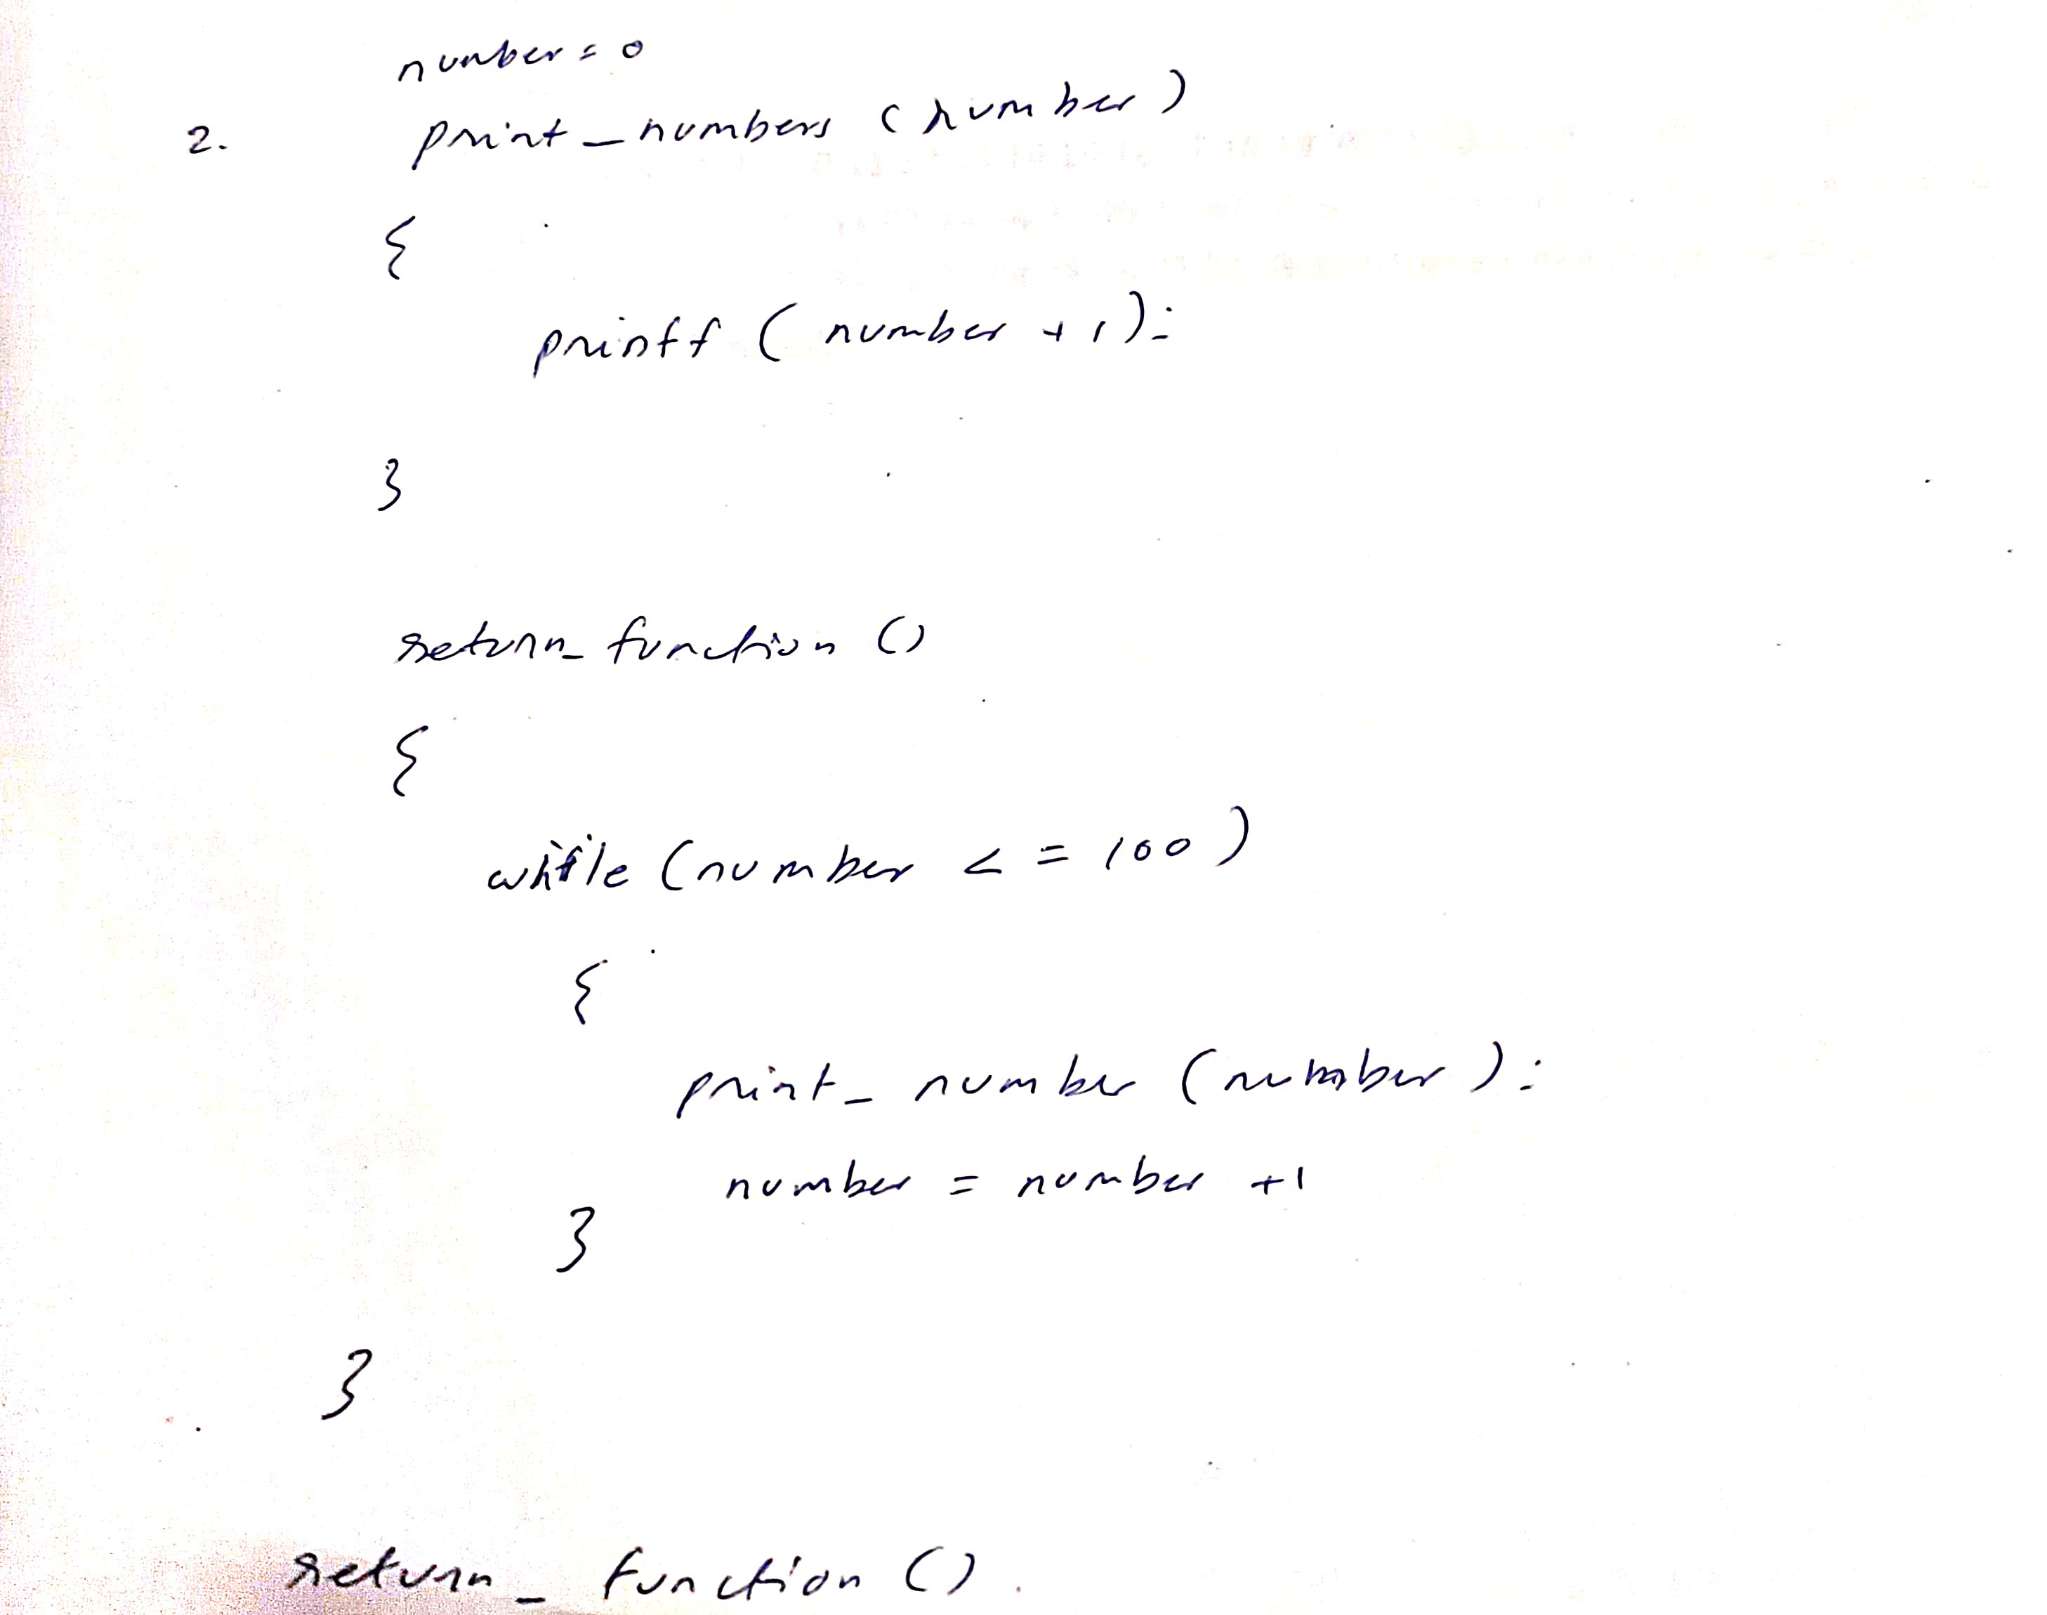 number = 0
2. print_numbers (number)
{
printf (number +1);
}
return_function ()
{
while (number <= 100)
{
print_number (number);
number = number +1
}
}
return_function ().